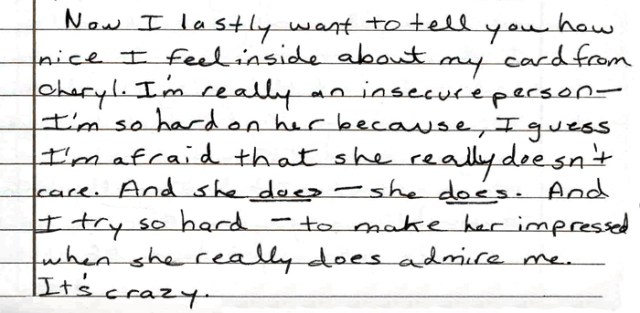 Now I lastly want to tell you how
nice I feel inside about my card from
Cheryl. I'm really an insecure person—
I'm so hard on her because, I guess
I'm afraid that she really doesn't
care. And she does — she does. And
I try so hard — to make her impressed
when she really does admire me.
It's crazy.